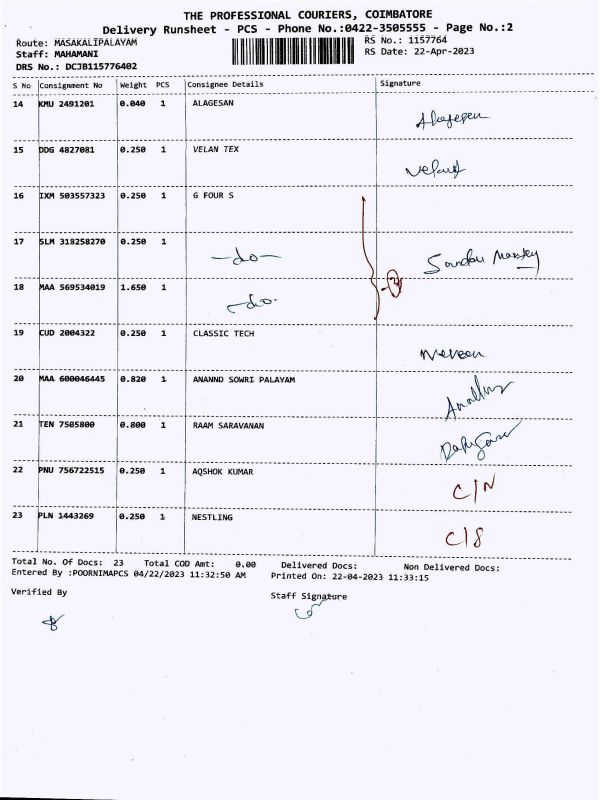 THE PROFESSIONAL COURIERS, COIMBATORE
Delivery Runsheet - PCS - Phone No.:0422-3505555 - Page No.:2
Route: MASAKALIPALAYAM RS No.: 1157764
Staff: MAHAMANI RS Date: 22-Apr-2023
DRS No.: DCJB115776402
S No Consignment No Weight PCS Consignee Details Signature
14 KMU 2491201 0.040 1 ALAGESAN
15 DDG 4827081 0.250 1 VELAN TEX
16 IXM 503557323 0.250 1 G FOUR S
17 SLM 318258270 0.250 1 -do-
18 MAA 569534019 1.650 1 -do-
19 CUD 2004322 0.250 1 CLASSIC TECH
20 MAA 600046445 0.820 1 ANANND SOWRI PALAYAM
21 TEN 7505800 0.800 1 RAAM SARAVANAN
22 PNU 756722515 0.250 1 AQSHOK KUMAR C/N
23 PLN 1443269 0.250 1 NESTLING C/S
Total No. Of Docs: 23 Total COD Amt: 0.00 Delivered Docs: Non Delivered Docs:
Entered By :POORNIMAPCS 04/22/2023 11:32:50 AM Printed On: 22-04-2023 11:33:15
Verified By Staff Signature